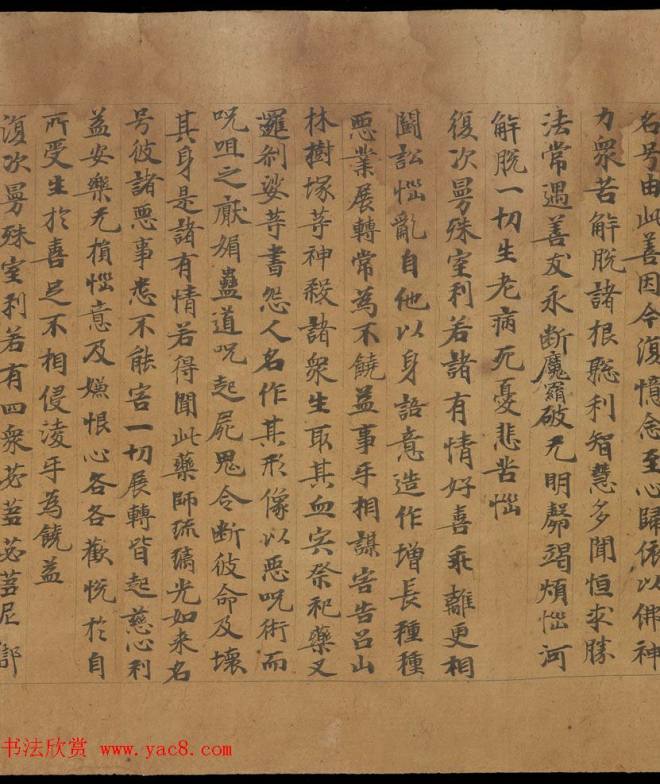 名号由此善因今復憶念至心歸依以佛神
力衆苦解脫諸根聡利智慧多聞恒求勝
法常遇善友永斷魔羂破无明㲉竭煩惱河
解脫一切生老病死憂悲苦惱
復次曼殊室利若諸有情好喜乖離更相
鬪訟惱亂自他以身語意造作增長種種
惡業展轉常為不饒益事乎相謀害告召山
林樹塚等神殺諸衆生取其血宍祭祀藥叉
邏剎娑等書怨人名作其形像以惡呪術而
呪咀之厭媚蠱道呪起屍鬼令斷彼命及壞
其身是諸有情若得聞此藥師琉璃光如来名
号彼諸惡事悉不能害一切展轉皆起慈心利
益安樂无損惱意及嫌恨心各各歡悅於自
所受生於喜足不相侵淩乎為饒益
復次曼殊室利若有四衆苾蒭苾蒭尼鄔
书法欣赏 www.yac8.com